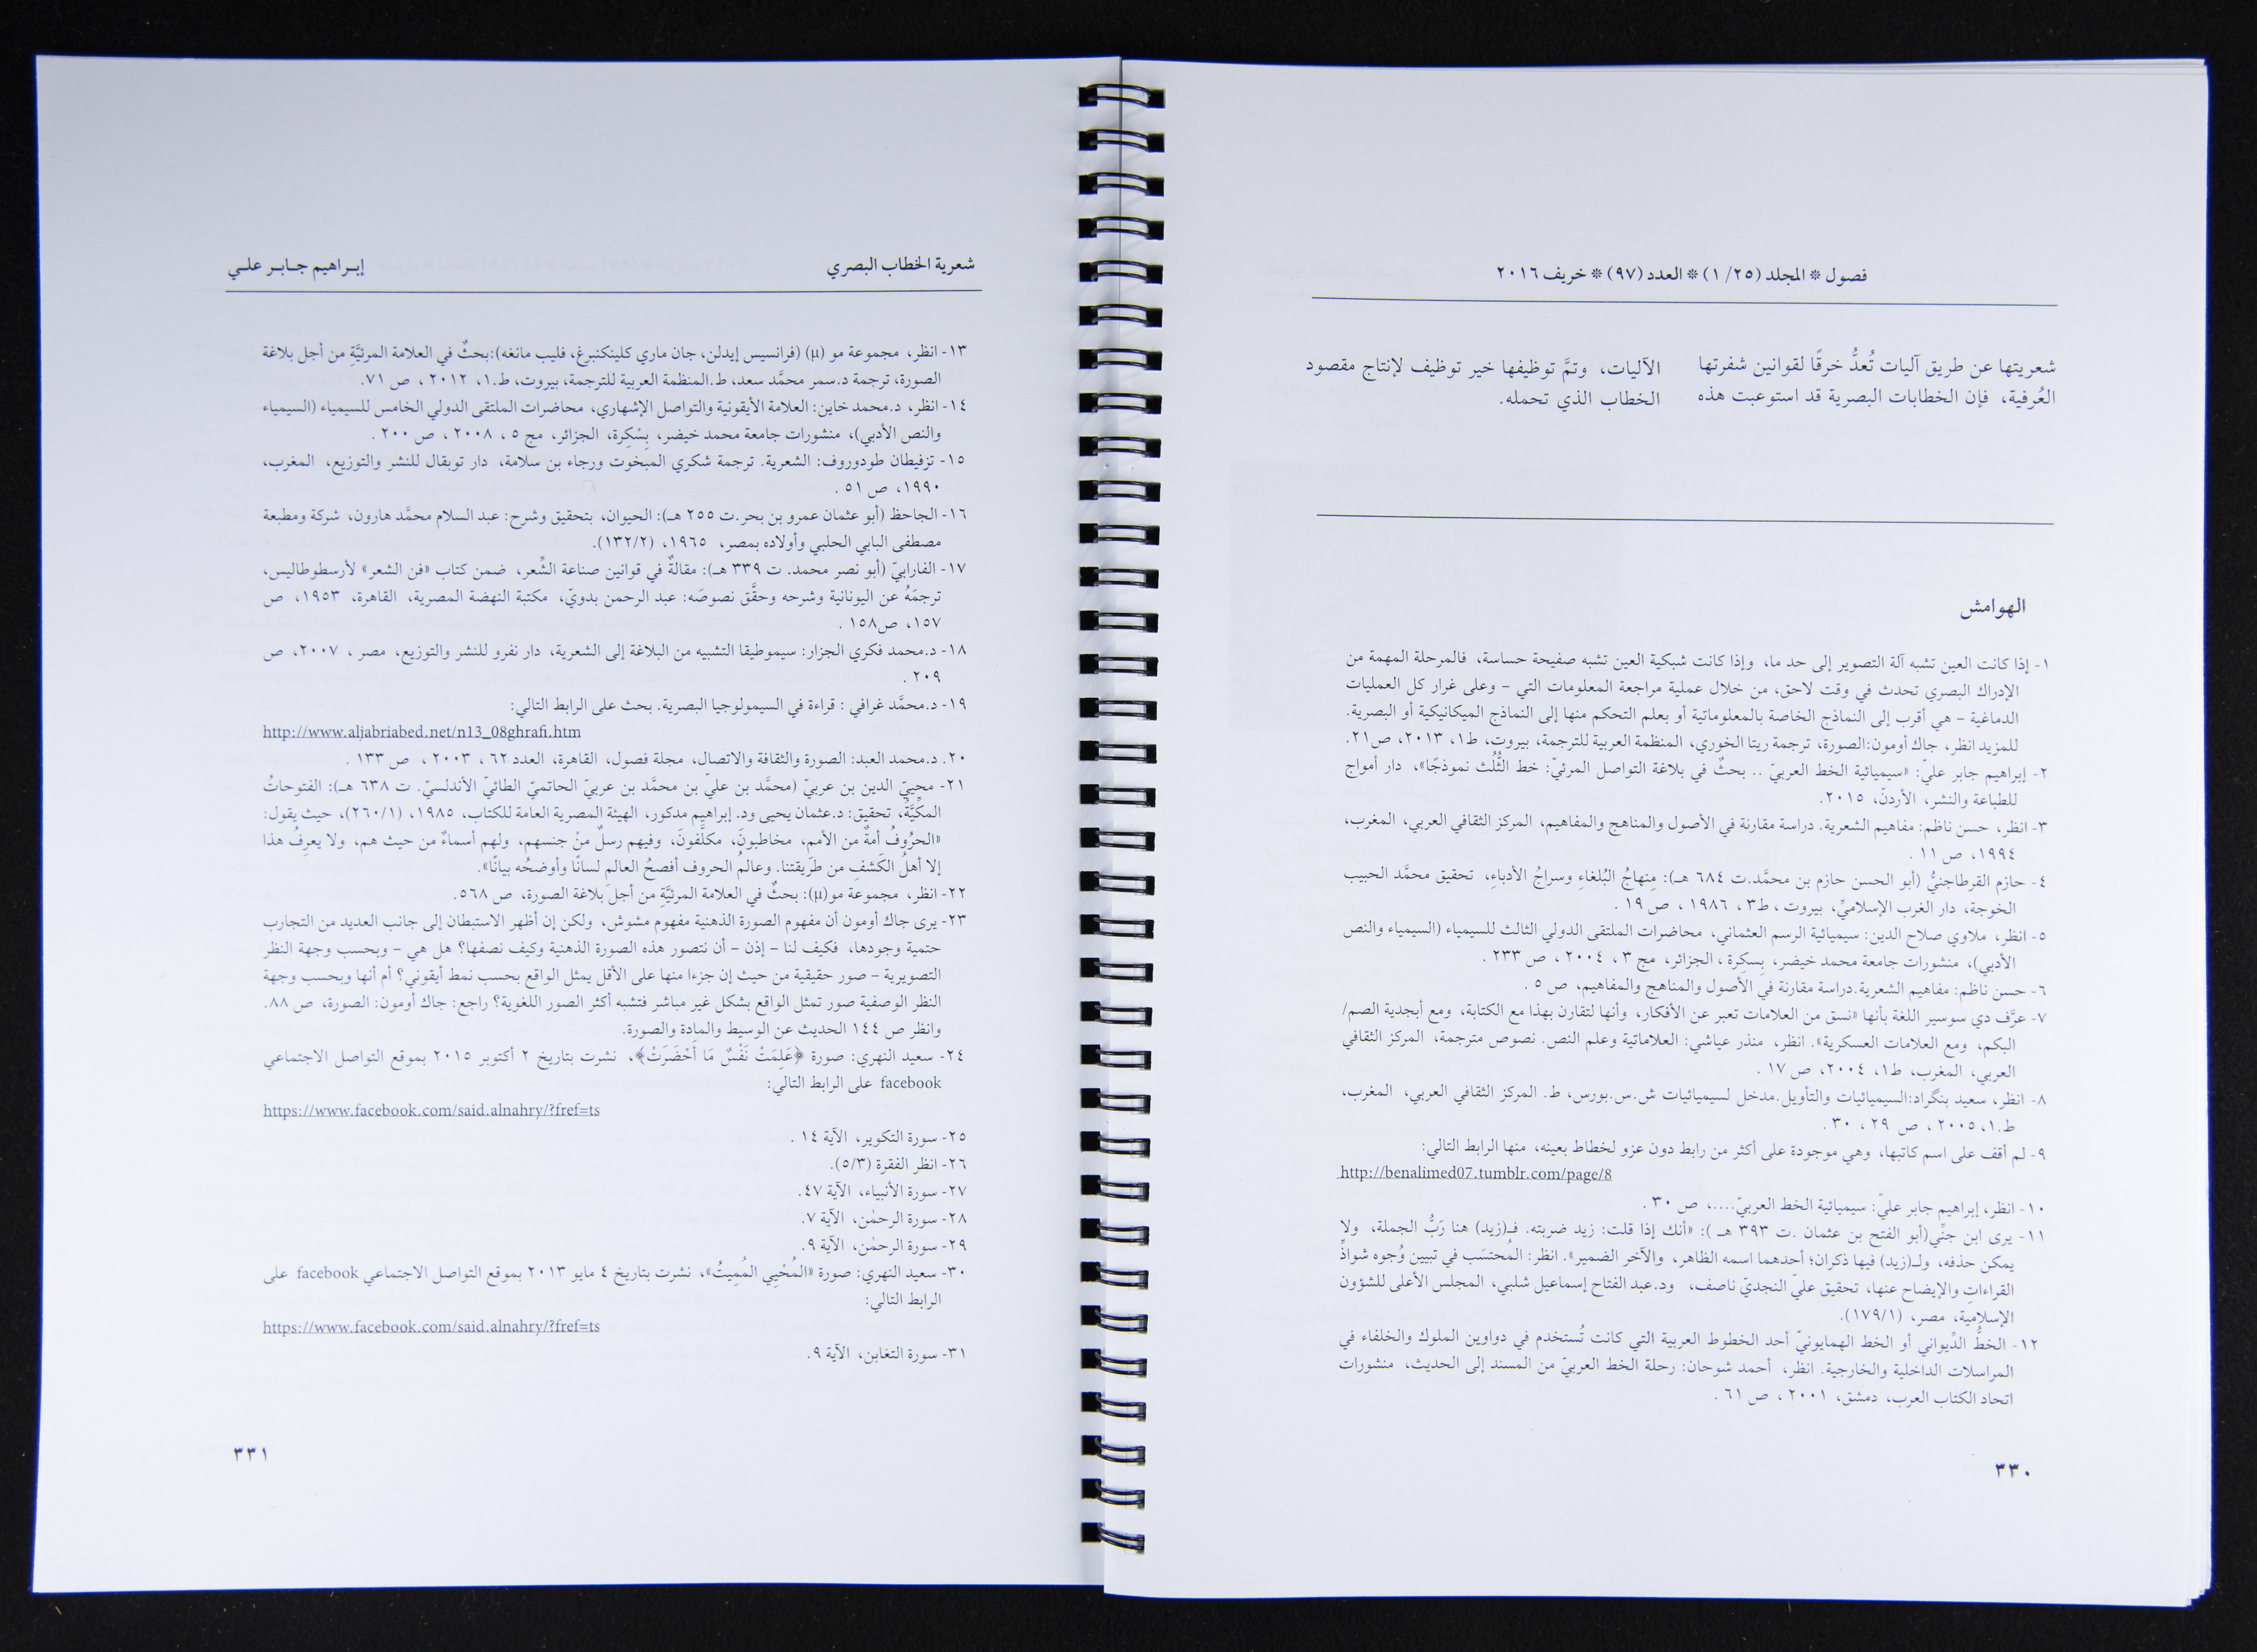 فصول * المجلد (٢٥/ ١) * العدد (٩٧) * خريف ٢٠١٦
شعريتها عن طريق آليات تُعدُّ خرقًا لقوانين شفرتها
العُرفية، فإن الخطابات البصرية قد استوعبت هذه
الآليات، وتمَّ توظيفها خير توظيف لإنتاج مقصود
الخطاب الذي تحمله.
الهوامش
١- إذا كانت العين تشبه آلة التصوير إلى حد ما، وإذا كانت شبكية العين تشبه صفيحة حساسة، فالمرحلة المهمة من
الإدراك البصري تحدث في وقت لاحق، من خلال عملية مراجعة المعلومات التي – وعلى غرار كل العمليات
الدماغية – هي أقرب إلى النماذج الخاصة بالمعلوماتية أو بعلم التحكم منها إلى النماذج الميكانيكية أو البصرية.
للمزيد انظر، جاك أومون:الصورة، ترجمة ريتا الخوري، المنظمة العربية للترجمة، بيروت، ط١، ٢٠١٣، ص٢١.
٢- إبراهيم جابر عليّ: «سيميائية الخط العربيّ .. بحثٌ في بلاغة التواصل المرئيّ: خط الثُّلُث نموذجًا»، دار أمواج
للطباعة والنشر، الأردنّ، ٢٠١٥.
٣- انظر، حسن ناظم: مفاهيم الشعرية. دراسة مقارنة في الأصول والمناهج والمفاهيم، المركز الثقافي العربي، المغرب،
١٩٩٤، ص ١١ .
٤- حازم القرطاجنيُّ (أبو الحسن حازم بن محمَّد.ت ٦٨٤ هـ): مِنهاجُ البُلغاءِ وسراجُ الأدباءِ، تحقيق محمَّد الحبيب
الخوجة، دار الغرب الإسلاميِّ، بيروت ، ط٣ ، ١٩٨٦ ، ص ١٩ .
٥- انظر، ملاوي صلاح الدين: سيميائية الرسم العثماني، محاضرات الملتقى الدولي الثالث للسيمياء (السيمياء والنص
الأدبي)، منشورات جامعة محمد خيضر، بِسكِرة ، الجزائر، مج ٣ ، ٢٠٠٤ ، ص ٢٣٣ .
٦- حسن ناظم: مفاهيم الشعرية.دراسة مقارنة في الأصول والمناهج والمفاهيم، ص ٥ .
٧- عرَّف دي سوسير اللغة بأنها «نسق من العلامات تعبر عن الأفكار، وأنها لتقارن بهذا مع الكتابة، ومع أبجدية الصم/
البكم، ومع العلامات العسكرية». انظر، منذر عياشي: العلاماتية وعلم النص. نصوص مترجمة، المركز الثقافي
العربي، المغرب، ط١، ٢٠٠٤، ص ١٧ .
٨- انظر، سعيد بنگراد:السيميائيات والتأويل.مدخل لسيميائيات ش.س.بورس، ط. المركز الثقافي العربي، المغرب،
ط.١، ٢٠٠٥ ، ص ٢٩ ، ٣٠ .
٩- لم أقف على اسم كاتبها، وهي موجودة على أكثر من رابط دون عزو لخطاط بعينه، منها الرابط التالي:
http://benalimed07.tumblr.com/page/8
١٠- انظر، إبراهيم جابر عليّ: سيميائية الخط العربيّ....، ص ٣٠ .
١١- يرى ابن جنِّي(أبو الفتح بن عثمان .ت ٣٩٣ هـ ): «أنك إذا قلت: زيد ضربته. فـ(زيد) هنا رَبُّ الجملة، ولا
يمكن حذفه، ولـ(زيد) فيها ذكران؛ أحدهما اسمه الظاهر، والآخر الضمير». انظر: المُحتسَب في تبيين وُجوه شواذِّ
القراءاتِ والإيضاح عنها، تحقيق عليّ النجديّ ناصف، ود.عبد الفتاح إسماعيل شلبي، المجلس الأعلى للشؤون
الإسلامية، مصر، (١٧٩/١).
١٢- الخطُّ الدِّيواني أو الخط الهمايونيّ أحد الخطوط العربية التي كانت تُستخدم في دواوين الملوك والخلفاء في
المراسلات الداخلية والخارجية. انظر، أحمد شوحان: رحلة الخط العربيّ من المسند إلى الحديث، منشورات
اتحاد الكتاب العرب، دمشق، ٢٠٠١ ، ص ٦١ .
٣٣٠
شعرية الخطاب البصري
إبـراهيم جـابـر علـي
١٣- انظر، مجموعة مو (µ) (فرانسيس إيدلن، جان ماري كلينكنبرغ، فليب مانغه):بحثٌ في العلامة المرئيَّةِ من أجل بلاغة
الصورة، ترجمة د.سمر محمَّد سعد، ط.المنظمة العربية للترجمة، بيروت، ط.١، ٢٠١٢ ، ص ٧١.
١٤- انظر، د.محمد خاين: العلامة الأيقونية والتواصل الإشهاري، محاضرات الملتقى الدولي الخامس للسيمياء (السيمياء
والنص الأدبي)، منشورات جامعة محمد خيضر، بِسْكِرة، الجزائر، مج ٥ ، ٢٠٠٨ ، ص ٢٠٠ .
١٥- تزفيطان طودوروف: الشعرية. ترجمة شكري المبخوت ورجاء بن سلامة، دار توبقال للنشر والتوزيع، المغرب،
١٩٩٠، ص ٥١ .
١٦- الجاحظ (أبو عثمان عمرو بن بحر.ت ٢٥٥ هـ): الحيوان، بتحقيق وشرح: عبد السلام محمَّد هارون، شركة ومطبعة
مصطفى البابي الحلبي وأولاده بمصر، ١٩٦٥، (١٣٢/٢).
١٧- الفارابيّ (أبو نصر محمد. ت ٣٣٩ هـ): مقالةٌ في قوانين صناعة الشِّعر، ضمن كتاب «فن الشعر» لأرسطوطاليس،
ترجمَهُ عن اليونانية وشرحه وحقَّق نصوصَه: عبد الرحمن بدويّ، مكتبة النهضة المصرية، القاهرة، ١٩٥٣، ص
١٥٧، ص١٥٨ .
١٨- د.محمد فكري الجزار: سيموطيقا التشبيه من البلاغة إلى الشعرية، دار نفرو للنشر والتوزيع، مصر ، ٢٠٠٧، ص
٢٠٩ .
١٩- د.محمَّد غرافي : قراءة في السيمولوجيا البصرية. بحث على الرابط التالي:
http://www.aljabriabed.net/n13_08ghrafi.htm
٢٠. د.محمد العبد: الصورة والثقافة والاتصال، مجلة فصول، القاهرة، العدد ٦٢ ، ٢٠٠٣ ، ص ١٣٣ .
٢١- محيي الدين بن عربيّ (محمَّد بن عليّ بن محمَّد بن عربيّ الحاتميّ الطائيّ الأندلسيّ. ت ٦٣٨ هـ): الفتوحاتُ
المكِّيَّةُ، تحقيق: د.عثمان يحيى ود. إبراهيم مدكور، الهيئة المصرية العامة للكتاب، ١٩٨٥، (٢٦٠/١)، حيث يقول:
«الحرُوفُ أمةٌ من الأمم، مخاطبونَ، مكلَّفونَ، وفيهم رسلٌ منْ جنسهم، ولهم أسماءٌ من حيث هم، ولا يعرِفُ هذا
إلا أهلُ الكَشفِ من طَريقتنا. وعالمُ الحروف أفصحُ العالم لسانًا وأوضحُه بيانًا».
٢٢- انظر، مجموعة مو(µ): بحثٌ في العلامة المرئيَّةِ من أجل بلاغة الصورة، ص ٥٦٨.
٢٣- يرى جاك أومون أن مفهوم الصورة الذهنية مفهوم مشوش، ولكن إن أظهر الاستبطان إلى جانب العديد من التجارب
حتمية وجودها، فكيف لنا – إذن – أن نتصور هذه الصورة الذهنية وكيف نصفها؟ هل هي – وبحسب وجهة النظر
التصويرية – صور حقيقية من حيث إن جزءا منها على الأقل يمثل الواقع بحسب نمط أيقوني؟ أم أنها وبحسب وجهة
النظر الوصفية صور تمثل الواقع بشكل غير مباشر فتشبه أكثر الصور اللغوية؟ راجع: جاك أومون: الصورة، ص ٨٨.
وانظر ص ١٤٤ الحديث عن الوسيط والمادة والصورة.
٢٤- سعيد النهري: صورة ﴿عَلِمَتْ نَفْسٌ مَا أَحْضَرَتْ﴾، نشرت بتاريخ ٢ أكتوبر ٢٠١٥ بموقع التواصل الاجتماعي
facebook على الرابط التالي:
https://www.facebook.com/said.alnahry/?fref=ts
٢٥- سورة التكوير، الآية ١٤ .
٢٦- انظر الفقرة (٥/٣).
٢٧- سورة الأنبياء، الآية ٤٧.
٢٨- سورة الرحمٰن، الآية ٧.
٢٩- سورة الرحمٰن، الآية ٩.
٣٠- سعيد النهري: صورة «المُحْيِي المُمِيتُ»، نشرت بتاريخ ٤ مايو ٢٠١٣ بموقع التواصل الاجتماعي facebook على
الرابط التالي:
https://www.facebook.com/said.alnahry/?fref=ts
٣١- سورة التغابن، الآية ٩.
٣٣١